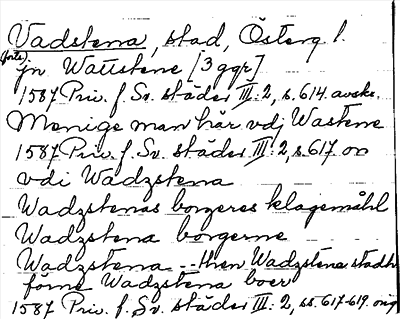 Vadstena, stad, Österg l.
(forts.)
jn Wattstene [3 ggr]
1587 Priv. f. Sv. städer III:2, s. 614. avskr.
Menige man här vdj Wastene
1587 Priv. f. Sv. städer III:2, s. 617. or
vdi Wadzstena
Wadzstenas borgeres klagemåhl
Wadzstena borgerne
Wadzstena -- then Wadzstena stadh
förne Wadzstena boer
1587 Priv. f. Sv. städer III:2, ss. 617-619. orig